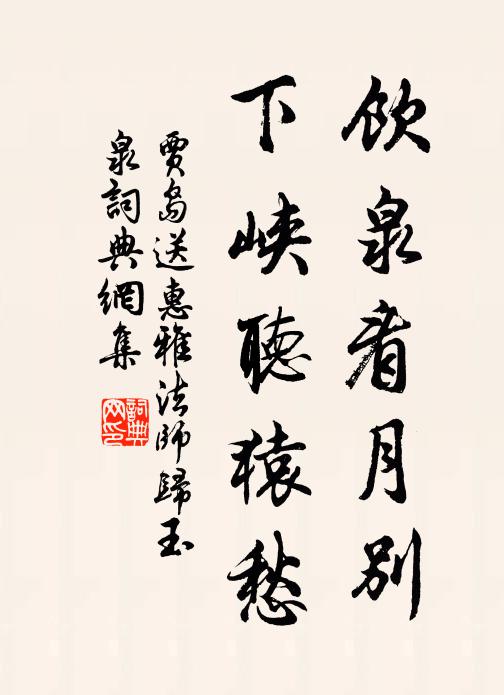 饮泉看月别
下峡聽猿愁
賈島送惠雅法師歸玉
泉詞典網集
詞典
网印